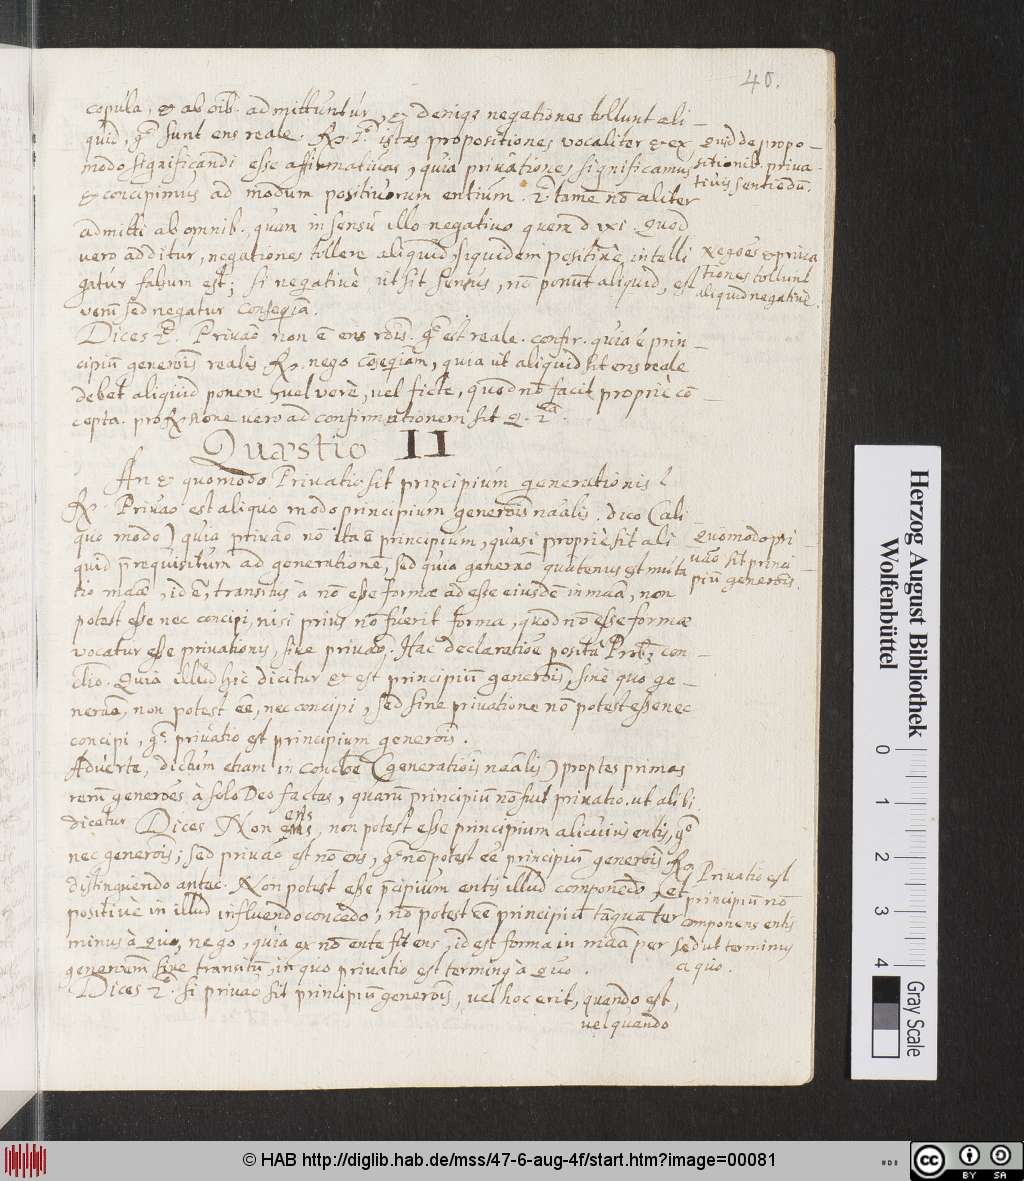 40.
copula, & ab oib. admittuntur, & deniqz negationes tollunt ali_
quid, gͦ sunt ens reale. Rx. 1ͦ. istas propositiones vocaliter & ex
modo significandi esse affirmativas, quia privationes significamus
& concipimus ad modum positivorum entium. 2ͦ tamē nō aliter
admitti ab omnib., quam in sensu illo negativo quem dixi. Quod
vero additur, negationes tollere aliquid, siquidem positivè, intelli
gatur falsum est; si negativè ut sit sensus, nō ponūt aliquid, est
verū sed negatur conseqīa.
Quid de propo_
sitionib. priva_
tivis sentiēdū.
Negōes & priva
tiones tollunt
aliquid negativè.
Dices 2ͦ. Privaō non ē ens rōis. gͦ est reale. confir. quia ē prin_
cipiū generōis realis Rx. nego cōseqīam, quia ut aliquid sit ens reale
debet aliquid ponere vel verè, vel fictè, quod nō facit propriè cō_
cepta. pro Rxsione vero ad confirmationem sit Q. 2ͣ.
Quæstio II
An & quomodo Privatio sit principium generationis?
Rx. Privaō est aliquo modo principium generōis naālis. dico (ali_
quo modo) quia privaō nō ita ē principium, quasi propriè sit ali
quid prequisitum ad generationē, sed quia generaō quatenus est muta
tio māe, id ē, transitus à nō esse formæ ad esse eiusdē in māa, non
potest esse nec concipi, nisi prius nō fuerit forma, quod nō esse formæ
vocatur esse privationis, sive privaō. Hac declaratiōe posita Prōb. con_
clio. Quia illud hic dicitur & est principiū generōis, sine quo ge_
neraō, non potest ēē, nec concipi, sed sine privatione nō potest esse nec
concipi, gͦ privatio est principium generōis.
Quomodo pri_
vaō sit princi_
piū generōis.
Adverte, dictum etiam in concloē (generatiois naālis) propter primas
rerū generōes à solo Deo factas, quarū principiū nō fuit privatio. ut alibi
dicetur Dices Non ens, non potest esse principium alicuius entis, gͦ
nec generōis; sed privaō est nō ens, gͦ nō potest ēē principiū generōis Rx.
distinguendo antec. Non potest esse pcipium entis illud componēdo, et
positivè in illud influendo concedo; nō potest ēē principiū tāquā ter
minus à Quo, nego, quia ex nō ente fit ens, id est forma in māa per
generōem sive transitū, in quo privatio est terminꝰ à Quo.
Privatio est
principiū nō
componens entis
sed ut terminus
a quo.
Dices 2ͦ. Si privaō sit principiū generōis, vel hoc erit, quando est,
vel quando
Herzog August Bibliothek
Wolfenbüttel
0 1 2 3 4
Gray Scale
© HAB http://diglib.hab.de/mss/47-6-aug-4f/start.htm?image=00081
cc BY SA